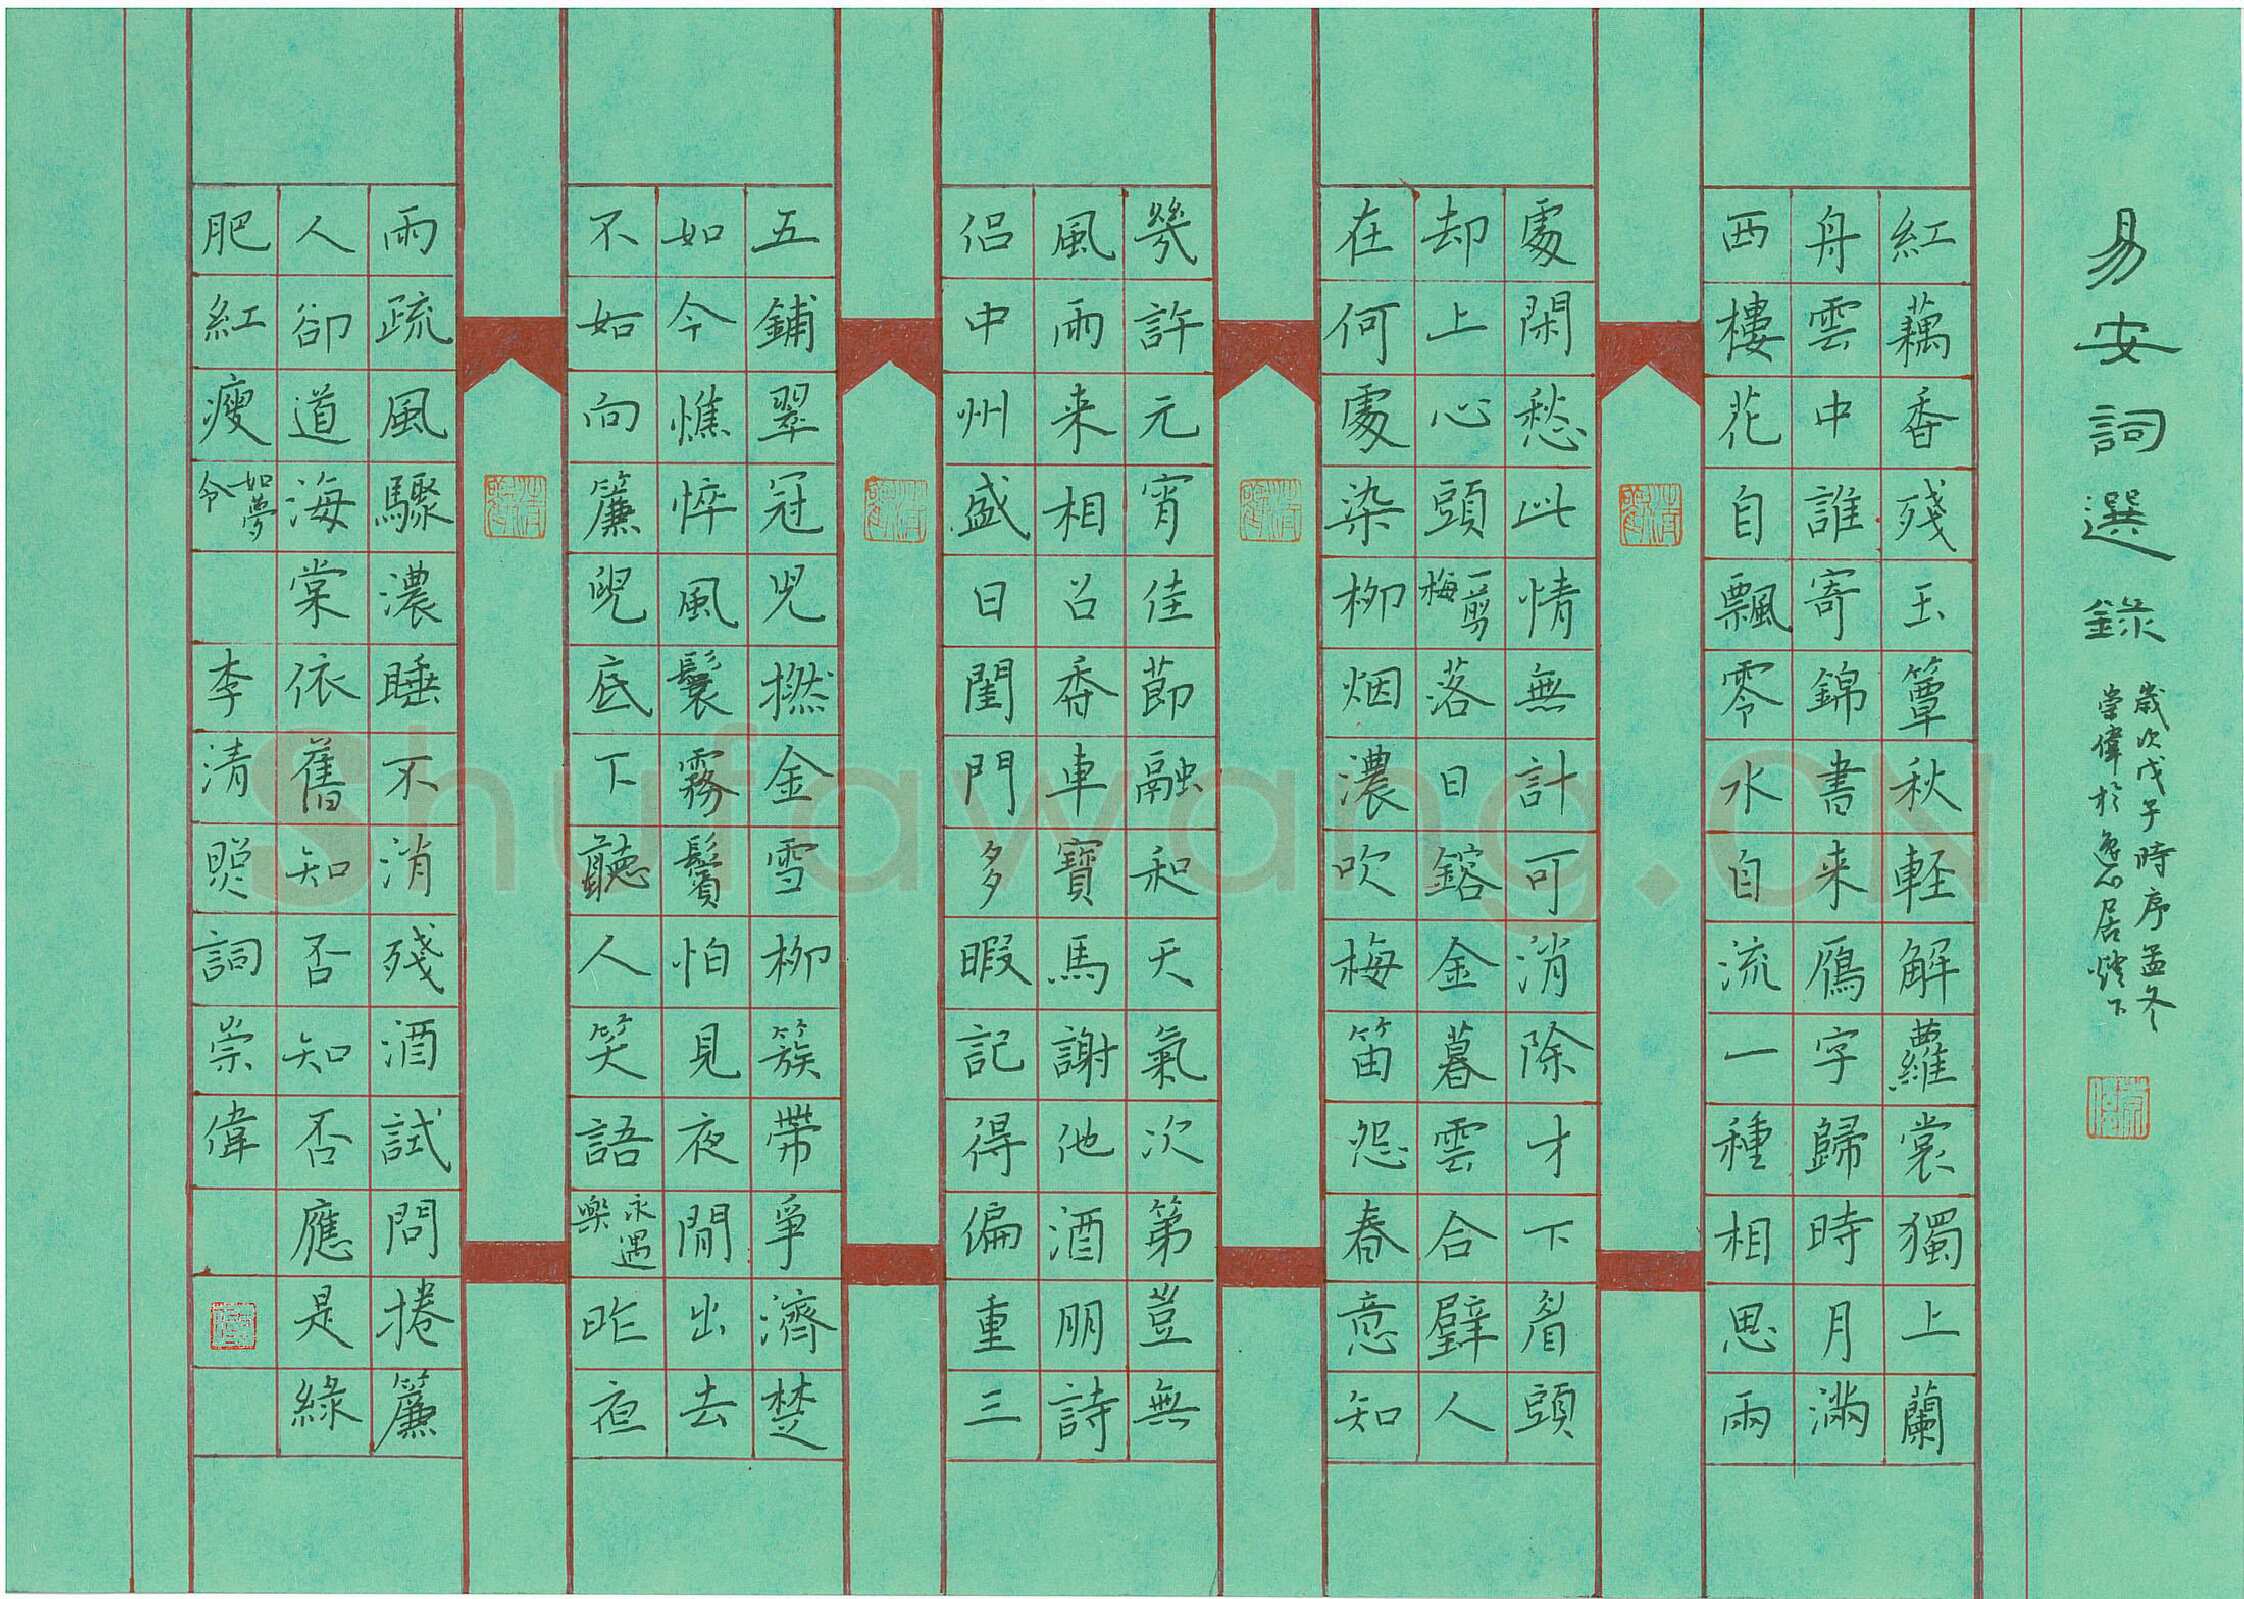 易安詞選錄
歲次戊子時序孟冬
崇偉於逸心居燈下
紅藕香殘玉簟秋輕解蘿裳獨上蘭
舟雲中誰寄錦書来鴈字歸時月滿
西樓花自飄零水自流一種相思兩
處閑愁此情無計可消除才下眉頭
却上心頭一剪梅落日鎔金暮雲合璧人
在何處染柳烟濃吹梅笛怨春意知
幾許元宵佳節融和天氣次第豈無
風雨来相召香車寶馬謝他酒朋詩
侣中州盛日閨門多暇記得偏重三
五鋪翠冠兒撚金雪柳簇帶爭濟楚
如今憔悴風鬟霧鬢怕見夜閒出去
不如向簾兒底下聽人笑語永遇樂昨夜
雨疏風驟濃睡不消殘酒試問捲簾
人卻道海棠依舊知否知否應是綠
肥紅瘦如夢令 李清照詞崇偉
Shufawang.CN